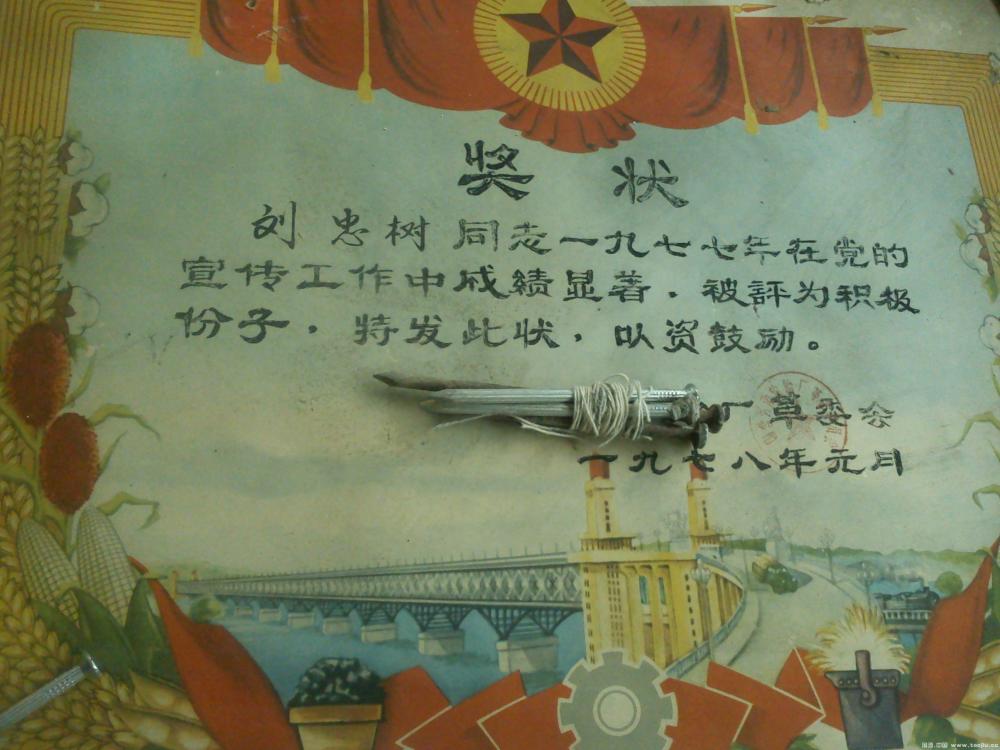 奖状
刘忠树同志一九七七年在党的
宣传工作中成績显著，被評为积极
份子，特发此状，以资鼓励。
厂革委会
一九七八年元月